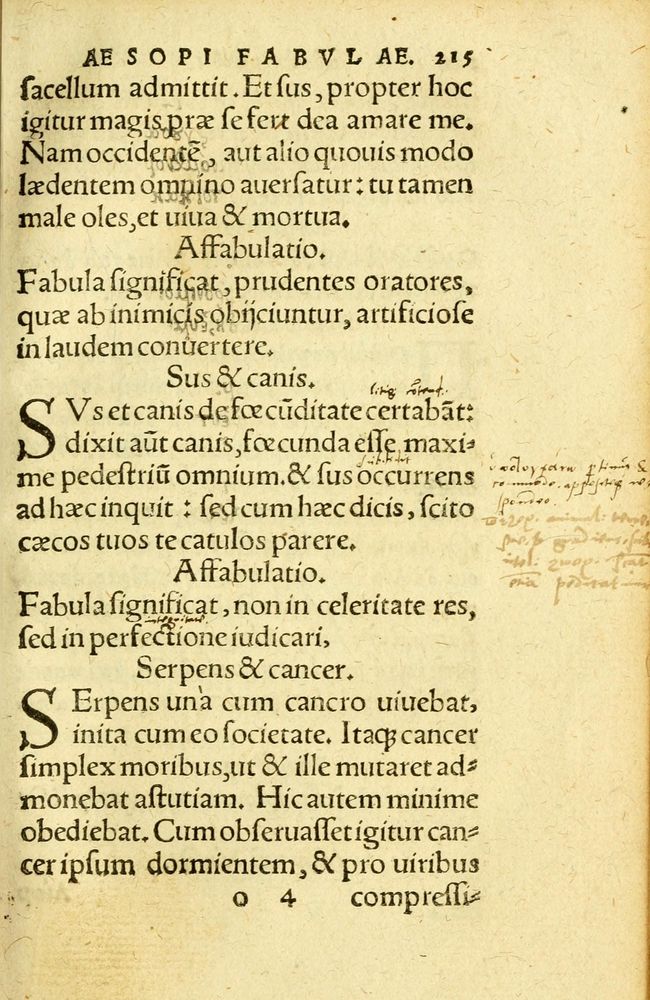 AESOPI FABVLAE. 215
sacellum admittit. Et sus, propter hoc
igitur magis præ se fert dea amare me.
Nam occidentē, aut alio quouis modo
lædentem omnino auersatur: tu tamen
male oles, et uiua & mortua.
Affabulatio.
Fabula significat, prudentes oratores,
quæ ab inimicis obijciuntur, artificiose
in laudem conuertere.
Sus & canis.
SVs et canis de fœcūditate certabāt:
dixit aūt canis, fœcunda esse maxi-
me pedestriū omnium. & sus occurrens
ad hæc inquit: sed cum hæc dicis, scito
cæcos tuos te catulos parere.
Affabulatio.
Fabula significat, non in celeritate res,
sed in perfectione iudicari,
Serpens & cancer.
SErpens unà cum cancro uiuebat,
inita cum eo societate. Itaq; cancer
simplex moribus, ut & ille mutaret ad-
monebat astutiam. Hic autem minime
obediebat. Cum obseruasset igitur can-
cer ipsum dormientem, & pro uiribus
o 4 compressi-